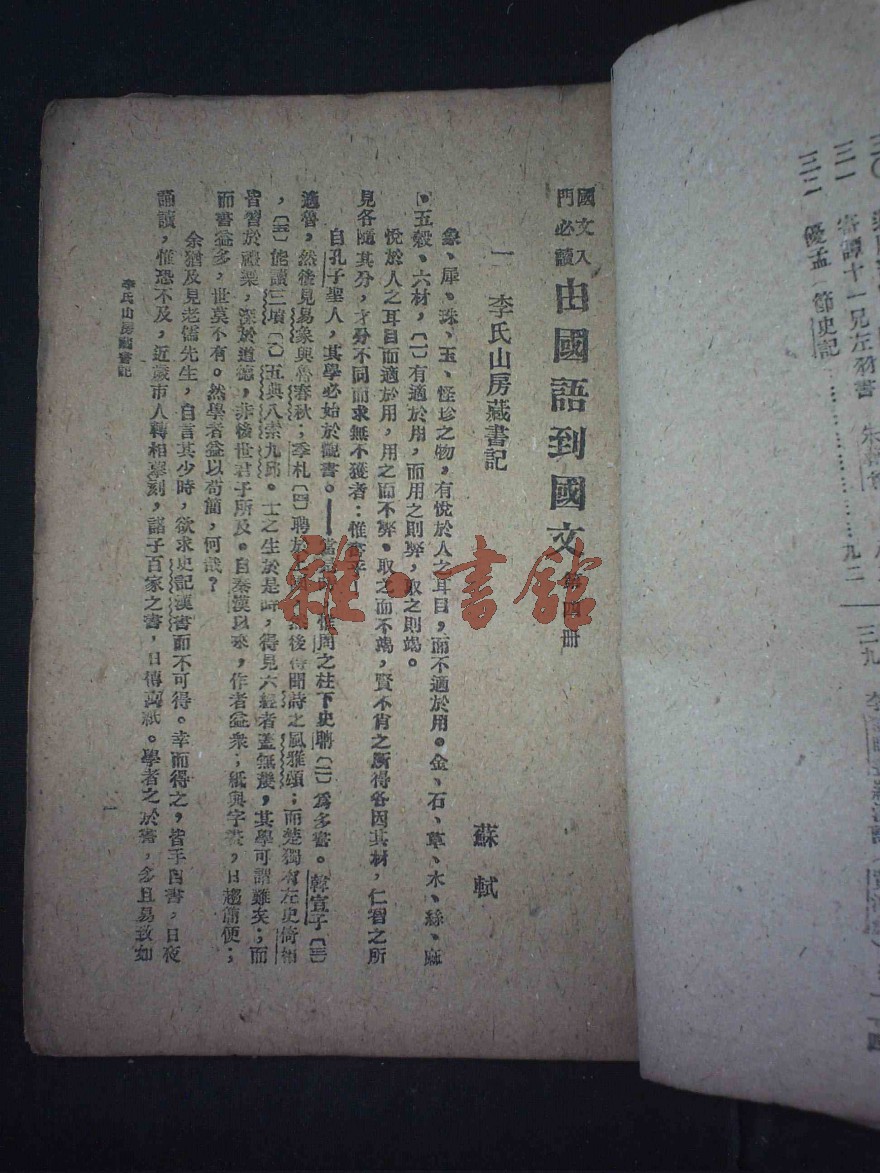 國文入
門必讀
由國語到國文 第四冊
一 李氏山房藏書記
蘇軾
象、犀、珠、玉、怪珍之物，有悅於人之耳目，而不適於用。金、石、草、木、絲、麻
、五穀、六材，〔一〕有適於用，而用之則弊，取之則竭。
悅於人之耳目而適於用，用之而不弊。取之而不竭，賢不肖之所得各因其材，仁智之所
見各隨其分，才分不同而求無不獲者：惟書乎！
自孔子聖人，其學必始於觀書。——當是時，惟周之柱下史聃〔二〕爲多書。韓宣子〔三〕
適魯，然後見易象與魯春秋；季札〔四〕聘於上國，然後得聞詩之風雅頌；而楚獨有左史倚相
，〔五〕能讀三墳〔六〕五典八索九邱。士之生於是時，得見六經者蓋無幾，其學可謂難矣；而
皆習於禮樂，深於道德，非後世君子所及。自秦漢以來，作者益衆；紙與字畫，日趨簡便；
而書益多，世莫不有。然學者益以苟簡，何哉？
余猶及見老儒先生，自言其少時，欲求史記漢書而不可得。幸而得之，皆手自書，日夜
誦讀，惟恐不及，近歲市人轉相摹刻，諸子百家之書，日傳萬紙。學者之於書，多且易致如
李氏山房藏書記
一
三〇
三一 寄譚十一兄左羽書
三二 優孟 節史記……九二
三九
雜·書館